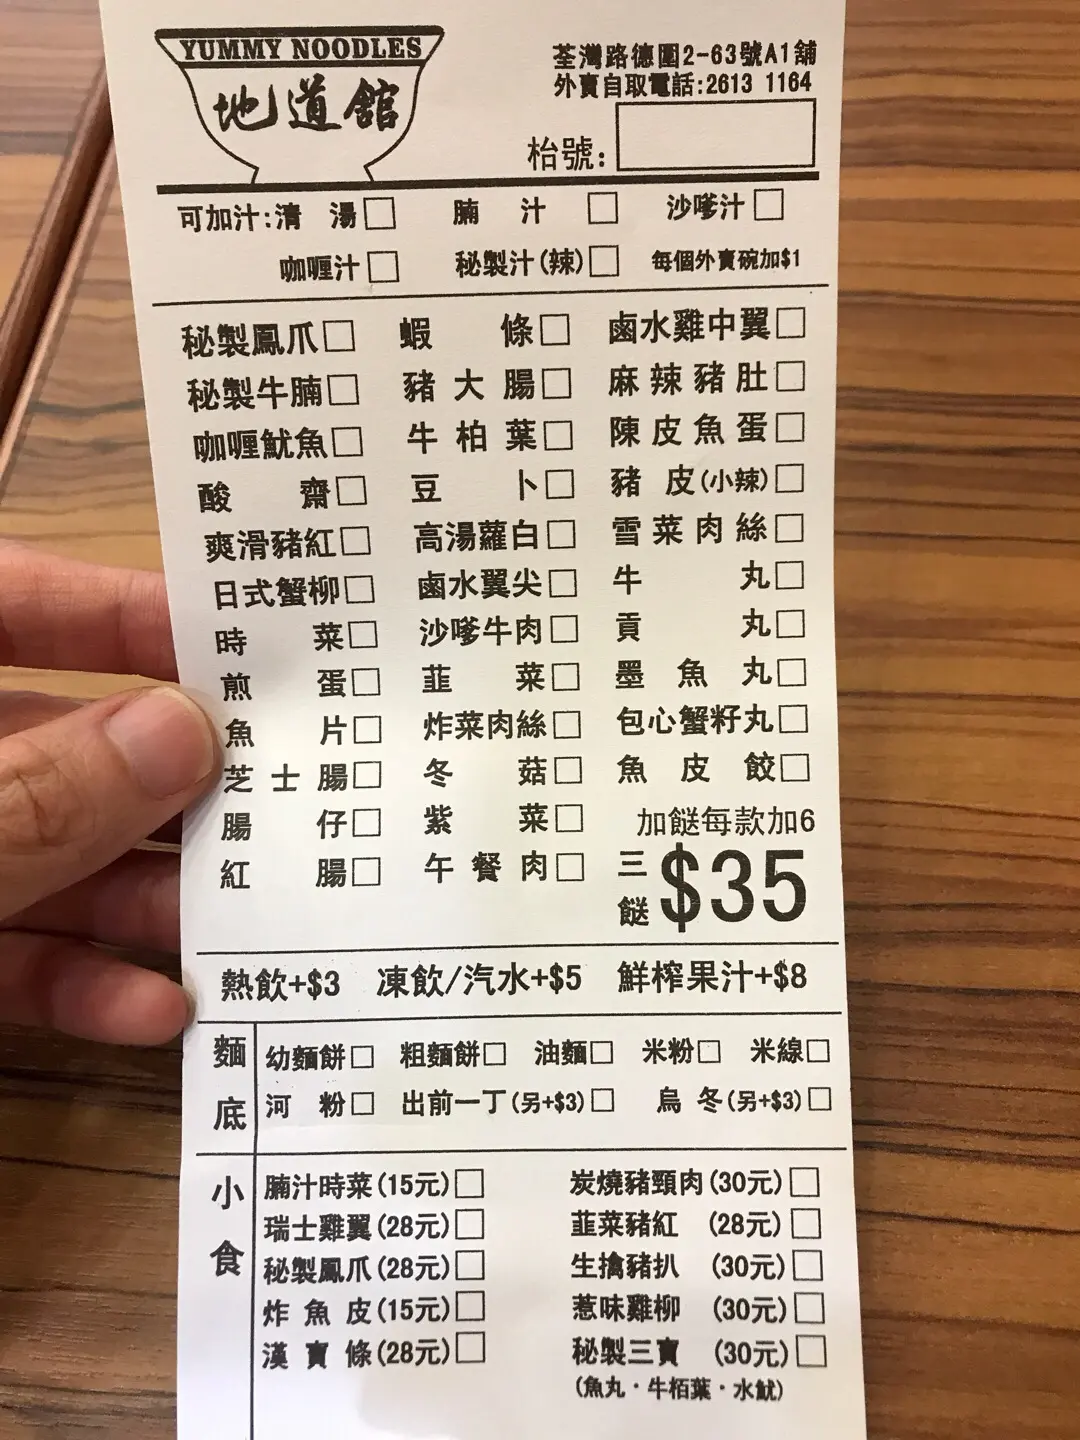 YUMMY NOODLES
地道舘
荃灣路德圍2-63號A1舖
外賣自取電話:2613 1164
枱號:
可加汁:清 湯□ 腩 汁 □ 沙嗲汁□
咖喱汁□ 秘製汁(辣)□ 每個外賣碗加$1
秘製鳳爪□ 蝦 條□ 鹵水雞中翼□
秘製牛腩□ 豬大腸□ 麻辣豬肚□
咖喱魷魚□ 牛柏葉□ 陳皮魚蛋□
酸 齋□ 豆 卜□ 豬皮(小辣)□
爽滑豬紅□ 高湯蘿白□ 雪菜肉絲□
日式蟹柳□ 鹵水翼尖□ 牛 丸□
時 菜□ 沙嗲牛肉□ 貢 丸□
煎 蛋□ 韮 菜□ 墨魚丸□
魚 片□ 炸菜肉絲□ 包心蟹籽丸□
芝士腸□ 冬 菇□ 魚皮餃□
腸 仔□ 紫 菜□ 加餸每款加6
紅 腸□ 午餐肉□ 三餸 $35
熱飲+$3 凍飲/汽水+$5 鮮榨果汁+$8
麵底
幼麵餅□ 粗麵餅□ 油麵□ 米粉□ 米線□
河 粉□ 出前一丁(另+$3)□ 烏 冬(另+$3)□
小食
腩汁時菜(15元)□ 炭燒豬頸肉(30元)□
瑞士雞翼(28元)□ 韮菜豬紅 (28元)□
秘製鳳爪(28元)□ 生擒豬扒 (30元)□
炸魚皮(15元)□ 惹味雞柳 (30元)□
漢寶條(28元)□ 秘製三寶 (30元)□
(魚丸·牛栢葉·水魷)